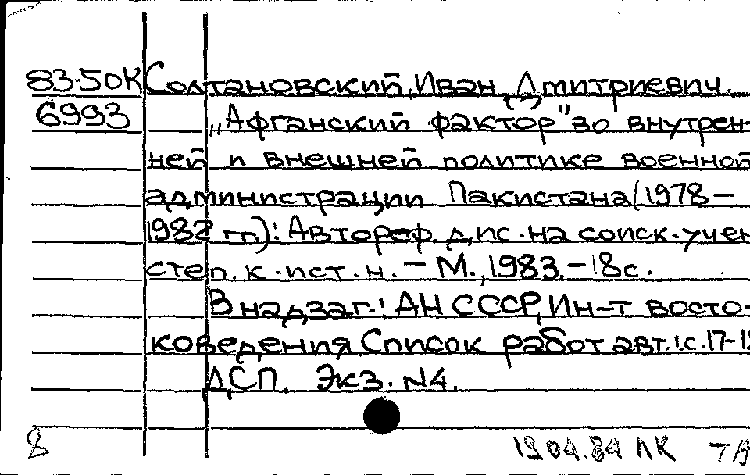 83-50К Солтановский, Иван Дмитриевич.
6993 „Афганский фактор" во внутрен-
ней и внешней политике военной
администрации Пакистана (1978-
1982 гг.): Автореф. дис. на соиск. учен.
степ. к. ист. н. - М., 1983. - 18 с.
В надзаг.: АН СССР, Ин-т восто-
коведения Список работ авт.: с. 17-18
ДСП. Экз. №4.
8 19.04.84 ЛК